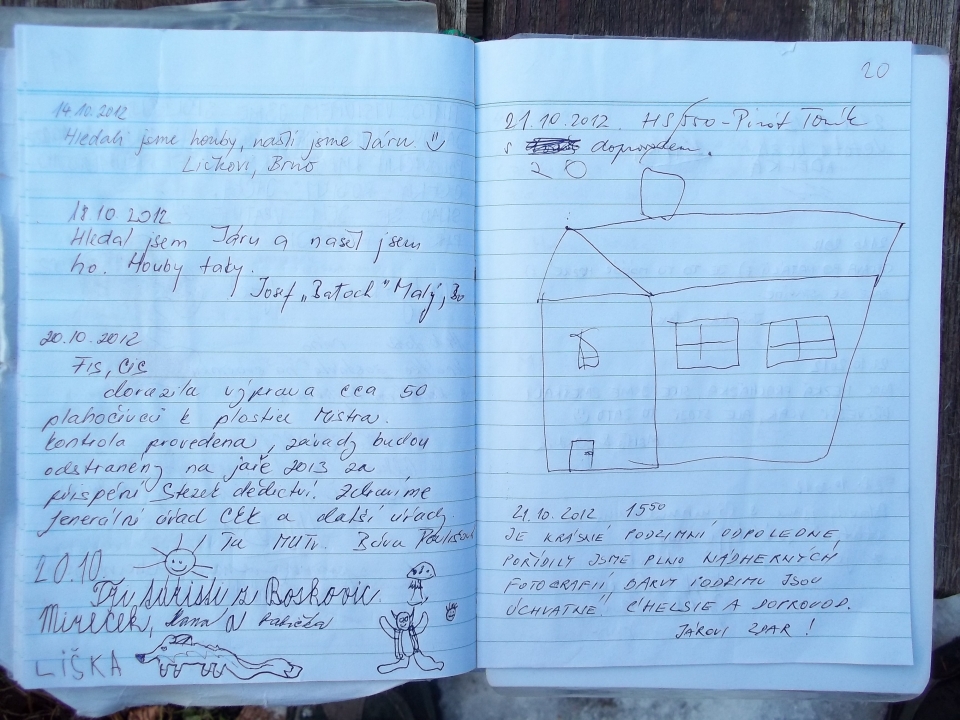 14.10.2012
Hledali jsme houby, našli jsme Járu
Lickovi, Brno
18 10 2012
Hledal jsem Járu a našel jsem
ho. Houby taky.
Josef „Batoch" Malý, Bo
20.10.2012
FIS, CIC
dorazila výprava cca 50
plahočivců k plastice Mistra.
Kontrola provedena, závady budou
odstraněny na jaře 2013 za
přispění Stezek dědictví. Zdravíme
generální úřad CEK a další úřady.
Bára
20.10.
Tři turisti z Boskovic
Mireček, Hana a
LIŠKA
20
21.10.2012. HS 550 - Pirát Toník
s doprovodem.
20
21.10.2012 15⁵⁰
JE KRÁSNÉ PODZIMNÍ ODPOLEDNE,
POŘÍDILY JSME PLNO NÁDHERNÝCH
FOTOGRAFIÍ, BARVY PODZIMU JSOU
ÚCHVATNÉ A DOPROVOD.
JÁROVI ZDAR !